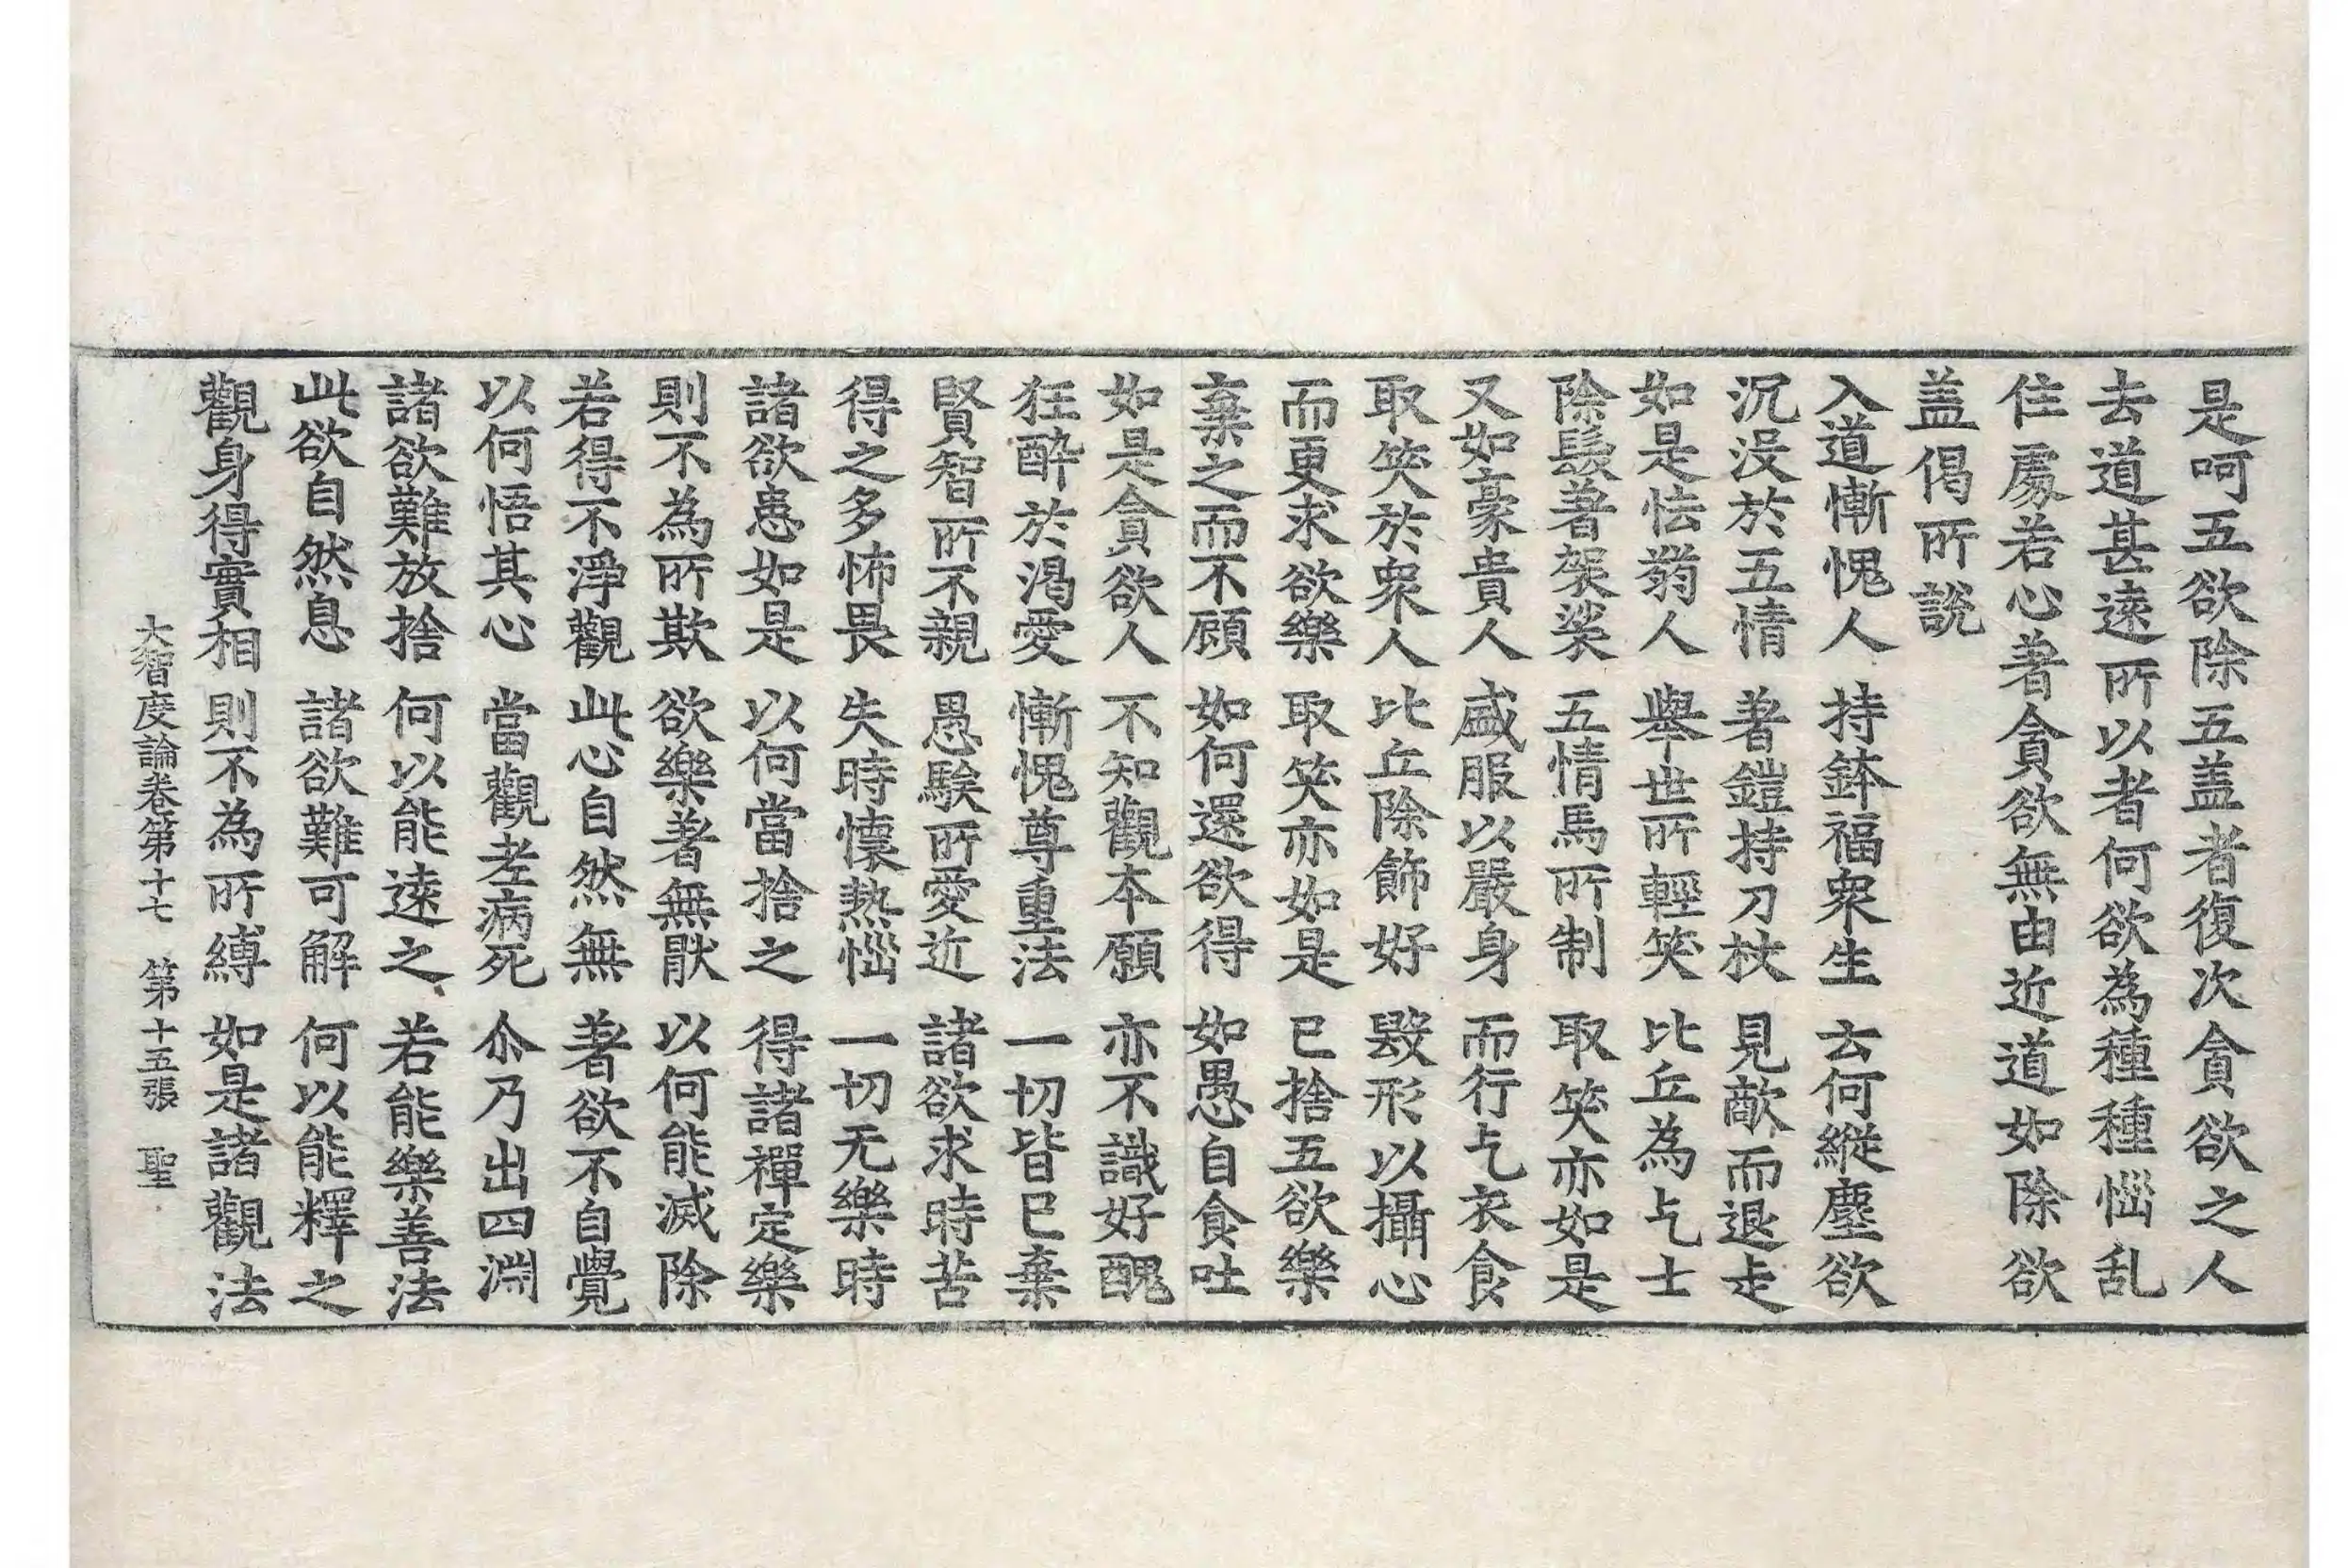 是呵五欲除五盖者復次貪欲之人
去道甚遠所以者何欲為種種惱乱
住處若心著貪欲無由近道如除欲
盖偈所說
入道慚愧人 持鉢福衆生 云何縱塵欲
沉沒於五情 著鎧持刀杖 見敵而退走
如是怯弱人 舉世所輕笑 比丘為乞士
除髮著袈裟 五情馬所制 取笑亦如是
又如豪貴人 盛服以嚴身 而行乞衣食
取笑於衆人 比丘除飾好 毀形以攝心
而更求欲樂 取笑亦如是 已捨五欲樂
棄之而不顧 如何還欲得 如愚自食吐
如是貪欲人 不知觀本願 亦不識好醜
狂醉於渴愛 慚愧尊重法 一切皆已棄
賢智所不親 愚騃所愛近 諸欲求時苦
得之多怖畏 失時懷熱惱 一切无樂時
諸欲患如是 以何當捨之 得諸禪定樂
則不為所欺 欲樂著無猒 以何能滅除
若得不淨觀 此心自然無 著欲不自覺
以何悟其心 當觀老病死 尒乃出四淵
諸欲難放捨 何以能遠之 若能樂善法
此欲自然息 諸欲難可解 何以能釋之
觀身得實相 則不為所縛 如是諸觀法
大智度論卷第十七 第十五張 聖